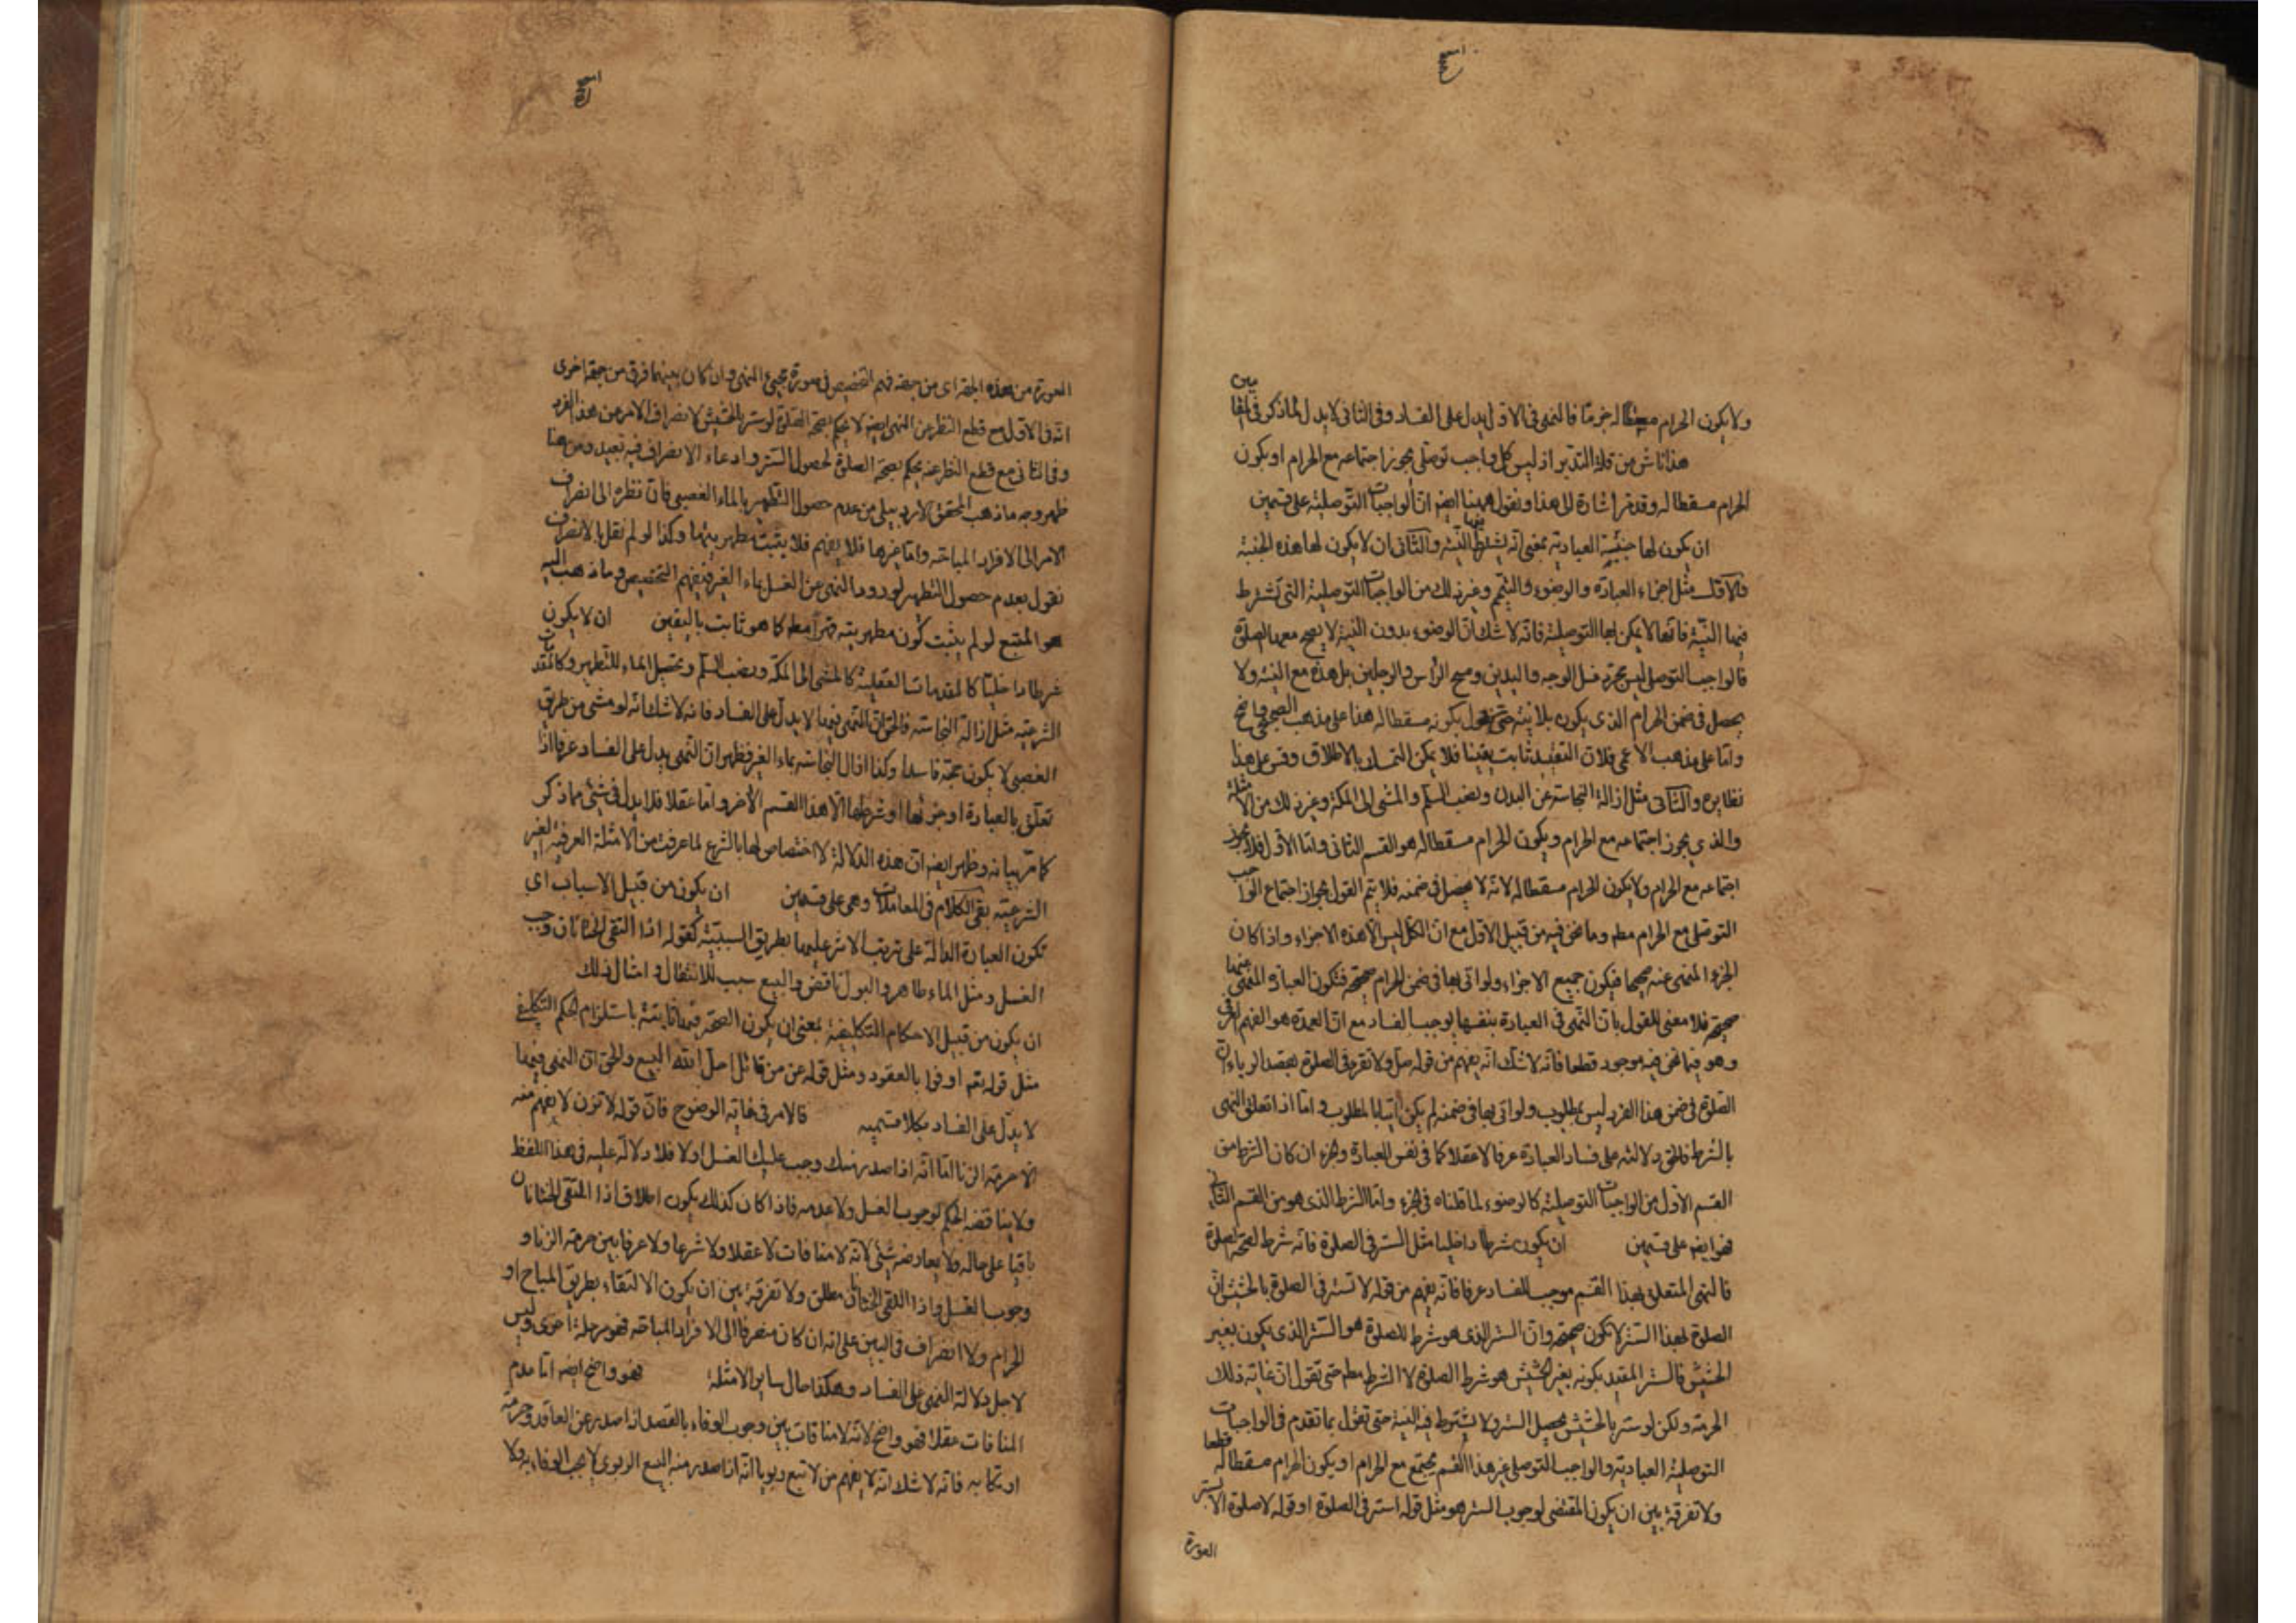 ولا يكون الحرام مسقطا له جزما فالنهى فى الاول يدل على الفساد وفى الثانى لا يدل لما ذكر فى
هذا ناش من قلة التدبر اذ ليس كل واجب توصلى يجوز اجتماعه مع الحرام او يكون
الحرام مسقطا له وقد مر اشارة الى هذا ونقول هيهنا ايضا ان الواجبات التوصلية على قسمين
ان يكون لها جنبة العبادية بمعنى انه يشترط فيها النية والثانى ان لا يكون لها هذه الجنبة
والاول مثل اجزاء العبادة والوضوء والتيمم وغير ذلك من الواجبات التوصلية التى تشترط
فيها النية فانها لا يمكن لها التوصلية فانه لا شك ان الوضوء بدون النية لا يصح معه الصلوة
فالواجب التوصلى ليس مجرد غسل الوجه واليدين ومسح الراس والرجلين بل هذه مع النية ولا
يحصل فى ضمن الحرام الذى يكون بلا نية حتى نقول بكونه مسقطا له هذا على مذهب الصحيحى واضح
واما على مذهب الاعمى فلان التقييد ثابت يقينا فلا يمكن التمسك بالاطلاق وقس على هذا
نظايره والثانى مثل ازالة النجاسة عن البدن ونصب السلم والمشى الى المكة وغير ذلك من الامثلة
والذى يجوز اجتماعه مع الحرام ويكون الحرام مسقطا له هو القسم الثانى واما الاول فلا يجوز
اجتماعه مع الحرام ولا يكون الحرام مسقطا له لانه لا يحصل فى ضمنه فلا يتم القول بجواز اجتماع الواجب
التوصلى مع الحرام مطم وما نحن فيه من قبيل الاول مع ان الكل ليس الا هذه الاجزاء واذا كان
الجزء المنهى عنه صحيحا فيكون جميع الاجزاء ولو اتى بها فى ضمن الحرام صحيحة فتكون العبادة المنهى عنها
صحيحة فلا معنى للقول بان النهى فى العبادة بنفسها يوجب الفساد مع ان العمدة هو الفهم العرفى
وهو فيما نحن فيه موجود قطعا فانه لا شك انه يفهم من قوله صل ولا تقرء فى الصلوة بقصد الرياء ان
الصلوة فى ضمن هذا الفرد ليس بمطلوب ولو اتى بها فى ضمنه لم يكن آتيا بالمطلوب واما اذا تعلق النهى
بالشرط فالحق دلالته على فساد العبادة عرفا لا عقلا كما فى نفس العبادة وجزء ان كان الشرط من
القسم الاول من الواجبات التوصلية كالوضوء لما قلناه فى الجزء واما الشرط الذى هو من القسم الثانى
فهو ايضا على قسمين ان يكون شرطا داخليا مثل الستر فى الصلوة فانه شرط لصحة الصلوة
فالنهى المتعلق بهذا القسم موجب للفساد عرفا فانه يفهم من قوله لا تستر فى الصلوة بالحشيش ان
الصلوة لهذا الستر لا تكون صحيحة وان الستر الذى هو شرط للصلوة هو الستر الذى يكون بغير
الحشيش فالستر المقيد بكونه بغير الحشيش هو شرط الصلوة لا الشرط مطم حتى تقول ان غاية ذلك
الحرمة ولكن لو ستر بالحشيش يحصل الستر ولا يشترط فيه النية حتى تقول بما تقدم فى الواجبات
التوصلية العبادية والواجب التوصلى غير هذا القسم يجتمع مع الحرام او يكون الحرام مسقطا له قطعا
ولا تفرقة بين ان يكون المقتضى لوجوب الستر هو مثل قوله استر فى الصلوة او قوله لا صلوة الا بستر
العورة
العورة من هذه الجهة اى من جهة فهم التخصيص فى صورة مجيئ النهى وان كان بينهما فرق من جهة اخرى
انه فى الاول مع قطع النظر عن النهى ايضا لا يحكم بصحة الصلوة لو ستر بالحشيش لانصراف الامر من هذا الفرد
وفى الثانى مع قطع النظر عنه يحكم بصحة الصلوة لحصول الستر وادعاء الانصراف فيه بعيد ومن هنا
ظهر وجه ما ذهب المحقق الاردبيلى من عدم حصول التطهير بالماء الغصبى فان نظره الى انصراف
الامر الى الافراد المباحة واما غيرها فلا يفهم فلا يثبت مطهريتها وكذا لو لم نقل بالانصراف
نقول بعدم حصول التطهير لورود النهى عن الغسل بماء الغير فيفهم التخصيص وما ذهب اليه
هو المتبع لو لم يثبت كون مطهريته قهرا مطم كما هو ثابت باليقين ان لا يكون
شرطا داخليا كالمقدمات العقلية كالمشى الى المكة ونصب السلم وتحصيل الماء للتطهير وكالمقدمات
الشرعية مثل ازالة النجاسة فالحق ان النهى فيها لا يدل على الفساد فانه لا شك انه لو مشى من طريق
الغصبى لا يكون حجه فاسدا وكذا ازال النجاسة بماء الغير فظهر ان النهى يدل على الفساد عرفا اذا
تعلق بالعبادة او جزئها او شرطها الا هذا القسم الاخر واما عقلا فلا يدل فى شئ مما ذكر
كما مر بيانه وظهر ايضا ان هذه الدلالة لا اختصاص لها بالشرع لما عرفت من الامثلة العرفية الغير
الشرعية بقى الكلام فى المعاملات وهى على قسمين ان يكون من قبيل الاسباب اى
تكون العبارة الدالة على ترتب الاثر عليها بطريق السببية كقوله اذا التقى الختانان وجب
الغسل ومثل الماء طاهر والبول ناقض والبيع سبب للانتقال وامثال ذلك
ان يكون من قبيل الاحكام التكليفية بمعنى ان يكون الصحة فيها ثابتة باستلزام الحكم التكليفى
مثل قوله تع اوفوا بالعقود ومثل قوله عز من قائل احل الله البيع والحق ان النهى فيها
لا يدل على الفساد بكلا قسميه فالامر فى غاية الوضوح فان قوله لا تزن لا يفهم منه
الا حرمة الزنا اما انه اذا صدر منك وجب عليك الغسل او لا فلا دلالة عليه فى هذا اللفظ
ولا يناقضه الحكم لوجوب الغسل ولا عدمه فاذا كان كذلك يكون اطلاق اذا التقى الختانان
باقيا على حاله ولا يعارضه شئ لانه لا منافات لا عقلا ولا شرعا ولا عرفا بين حرمة الزنا و
وجوب الغسل واذا التقى الختانان مطلق ولا تفرقة بين ان يكون الالتقاء بطريق المباح او
الحرام ولا انصراف فى البين على انه ان كان منصرفا الى الافراد المباحة فهو مرحلة اخرى وليس
لاجل دلالة النهى على الفساد وهكذا حال ساير الامثلة فهو واضح ايضا اما عدم
المنافات عقلا فهو واضح لانه لا منافات بين وجوب الوفاء بالعقد اذا صدر عن العاقد وحرمة
ارتكابه فانه لا شك انه لا يفهم من لا تبع ربويا انه اذا صدر منه البيع الربوى لا يجب الوفاء به ولا